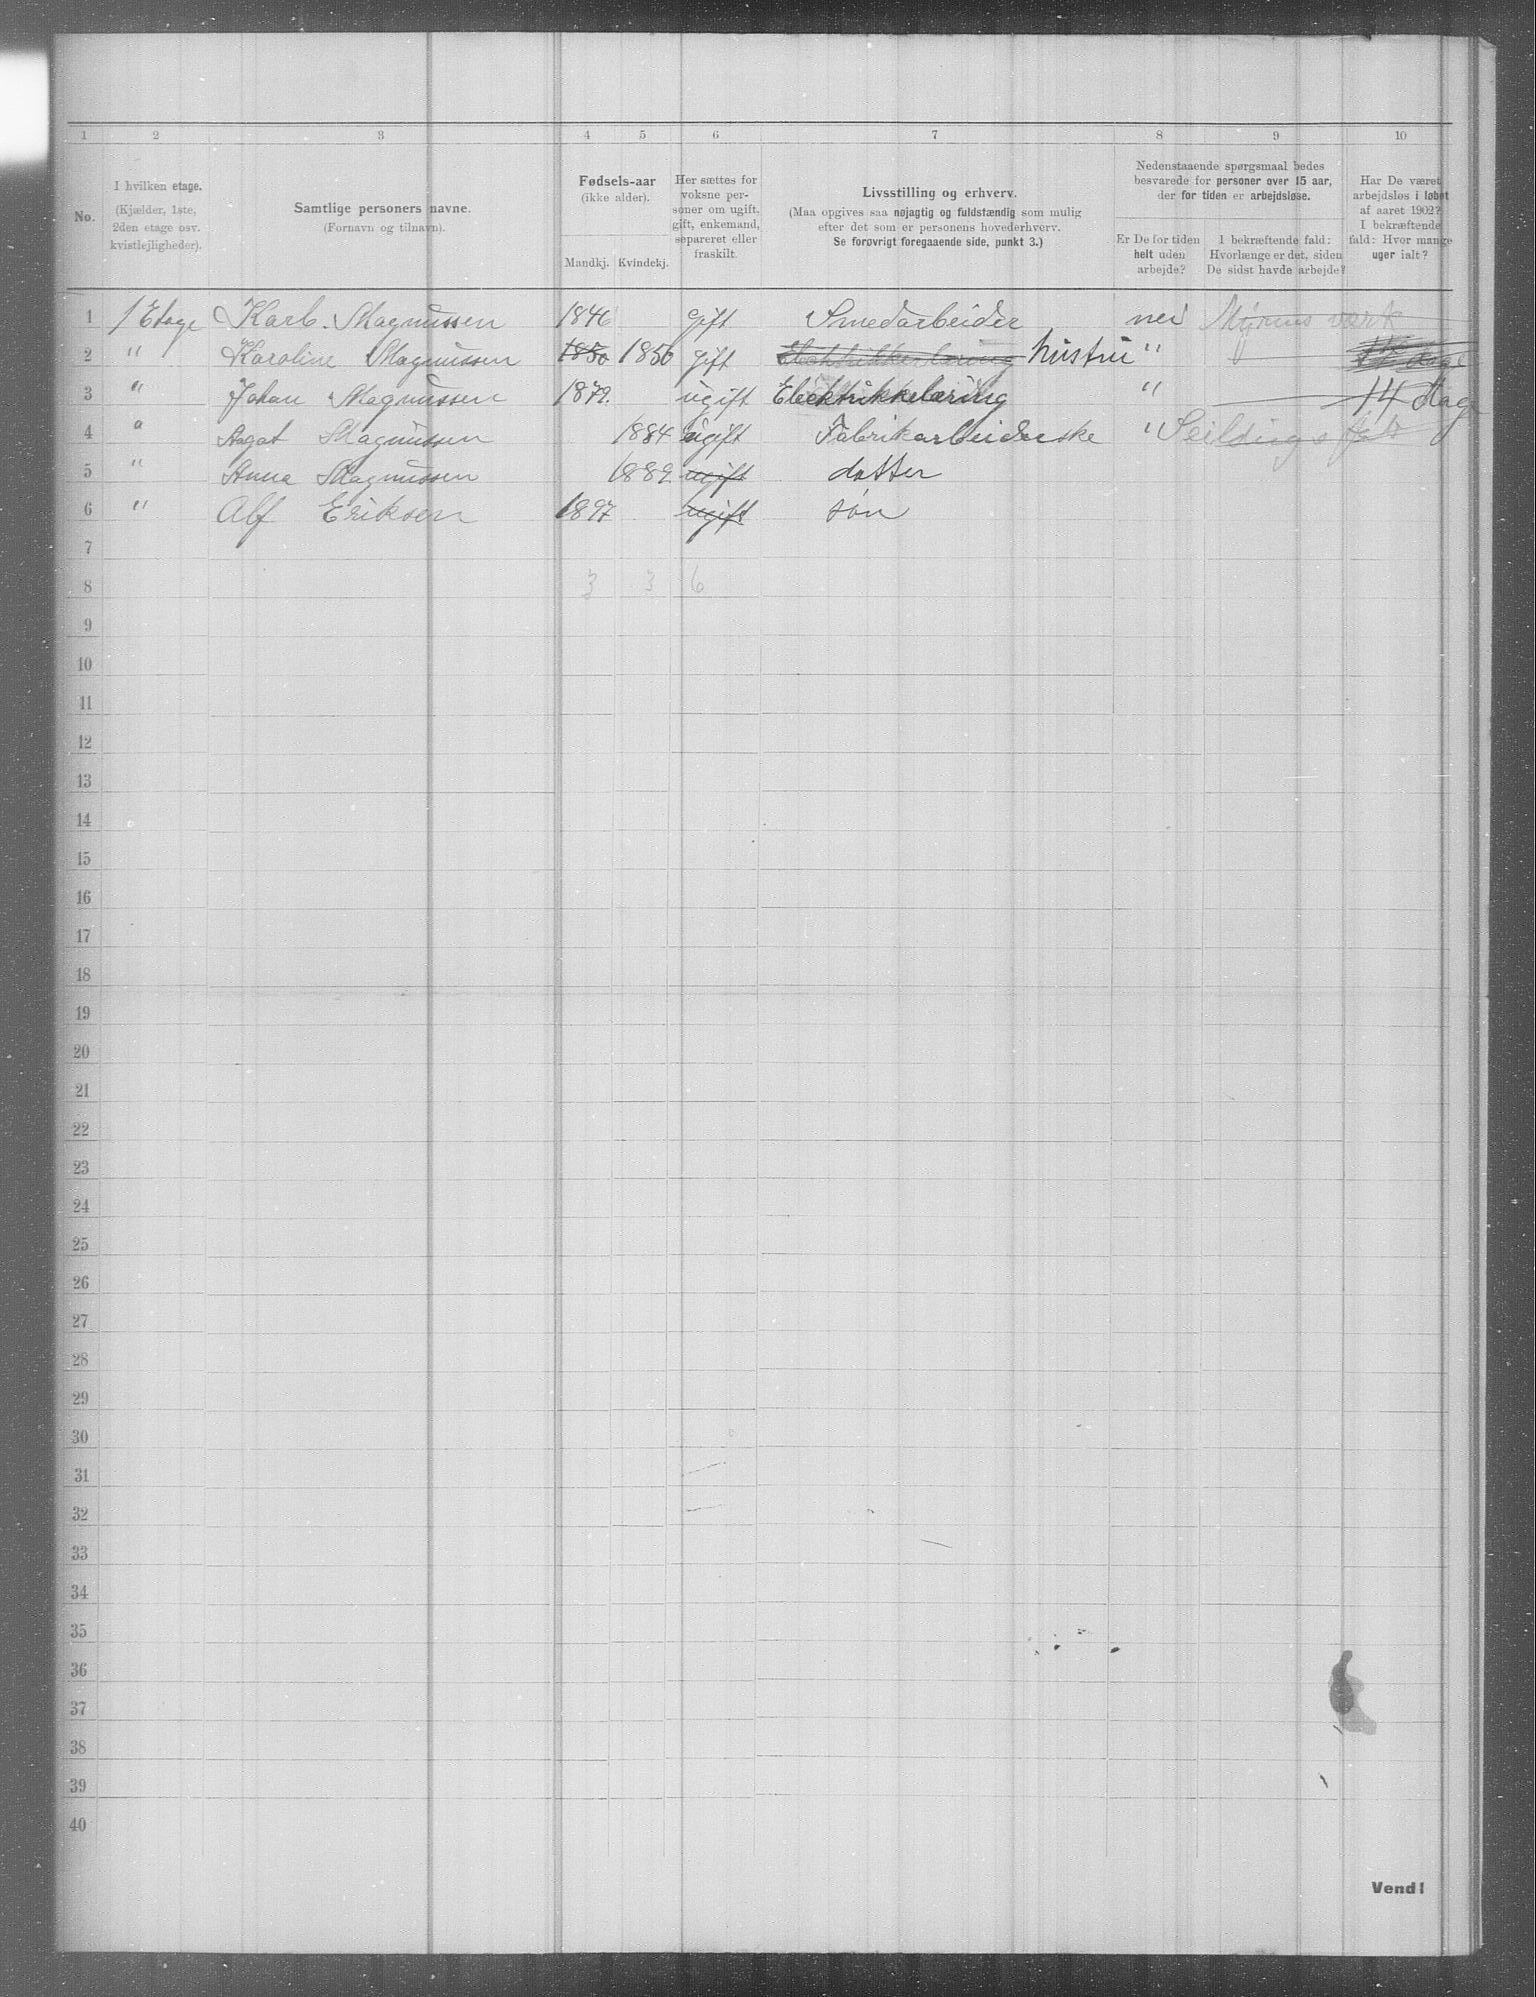 1 2 3 4 5 6 7 8 9 10
No.
I hvilken etage.
(Kjælder, 1ste,
2den etage osv.
kvistlejligheder).
Samtlige personers navne.
(Fornavn og tilnavn).
Fødsels-aar
(ikke alder).
Mandkj. Kvindekj.
Her sættes for
voksne per-
soner om ugift,
gift, enkemand,
separeret eller
fraskilt.
Livsstilling og erhverv.
(Maa opgives saa nøjagtig og fuldstændig som mulig
efter det som er personens hovederhverv.
Se forøvrigt foregaaende side, punkt 3.)
Nedenstaaende spørgsmaal bedes
besvarede for personer over 15 aar,
der for tiden er arbejdsløse.
Er De for tiden
helt uden
arbejde?
I bekræftende fald:
Hvorlænge er det, siden
De sidst havde arbejde?
Har De været
arbejdsløs i løbet
af aaret 1902?
I bekræftende
fald: Hvor mange
uger ialt?
1 1 Etage Karl. Magnussen 1846 gift Smedarbeider nei Myrens værk
2 " Karoline Magnussen 1850 1850 gift Elecktrikkerlæring hustru "
3 " Johan Magnussen 1879. ugift Elecktrikkelæring " 14 Dage
4 " Aagat Magnussen 1884 ugift Fabrikarbeiderske " Seildugs fab
5 " Anna Magnussen 1889 ugift datter
6 " Alf Eriksen 1897 ugift søn
7
8 3 3 6
9
10
11
12
13
14
15
16
17
18
19
20
21
22
23
24
25
26
27
28
29
30
31
32
33
34
35
36
37
38
39
40
Vend!